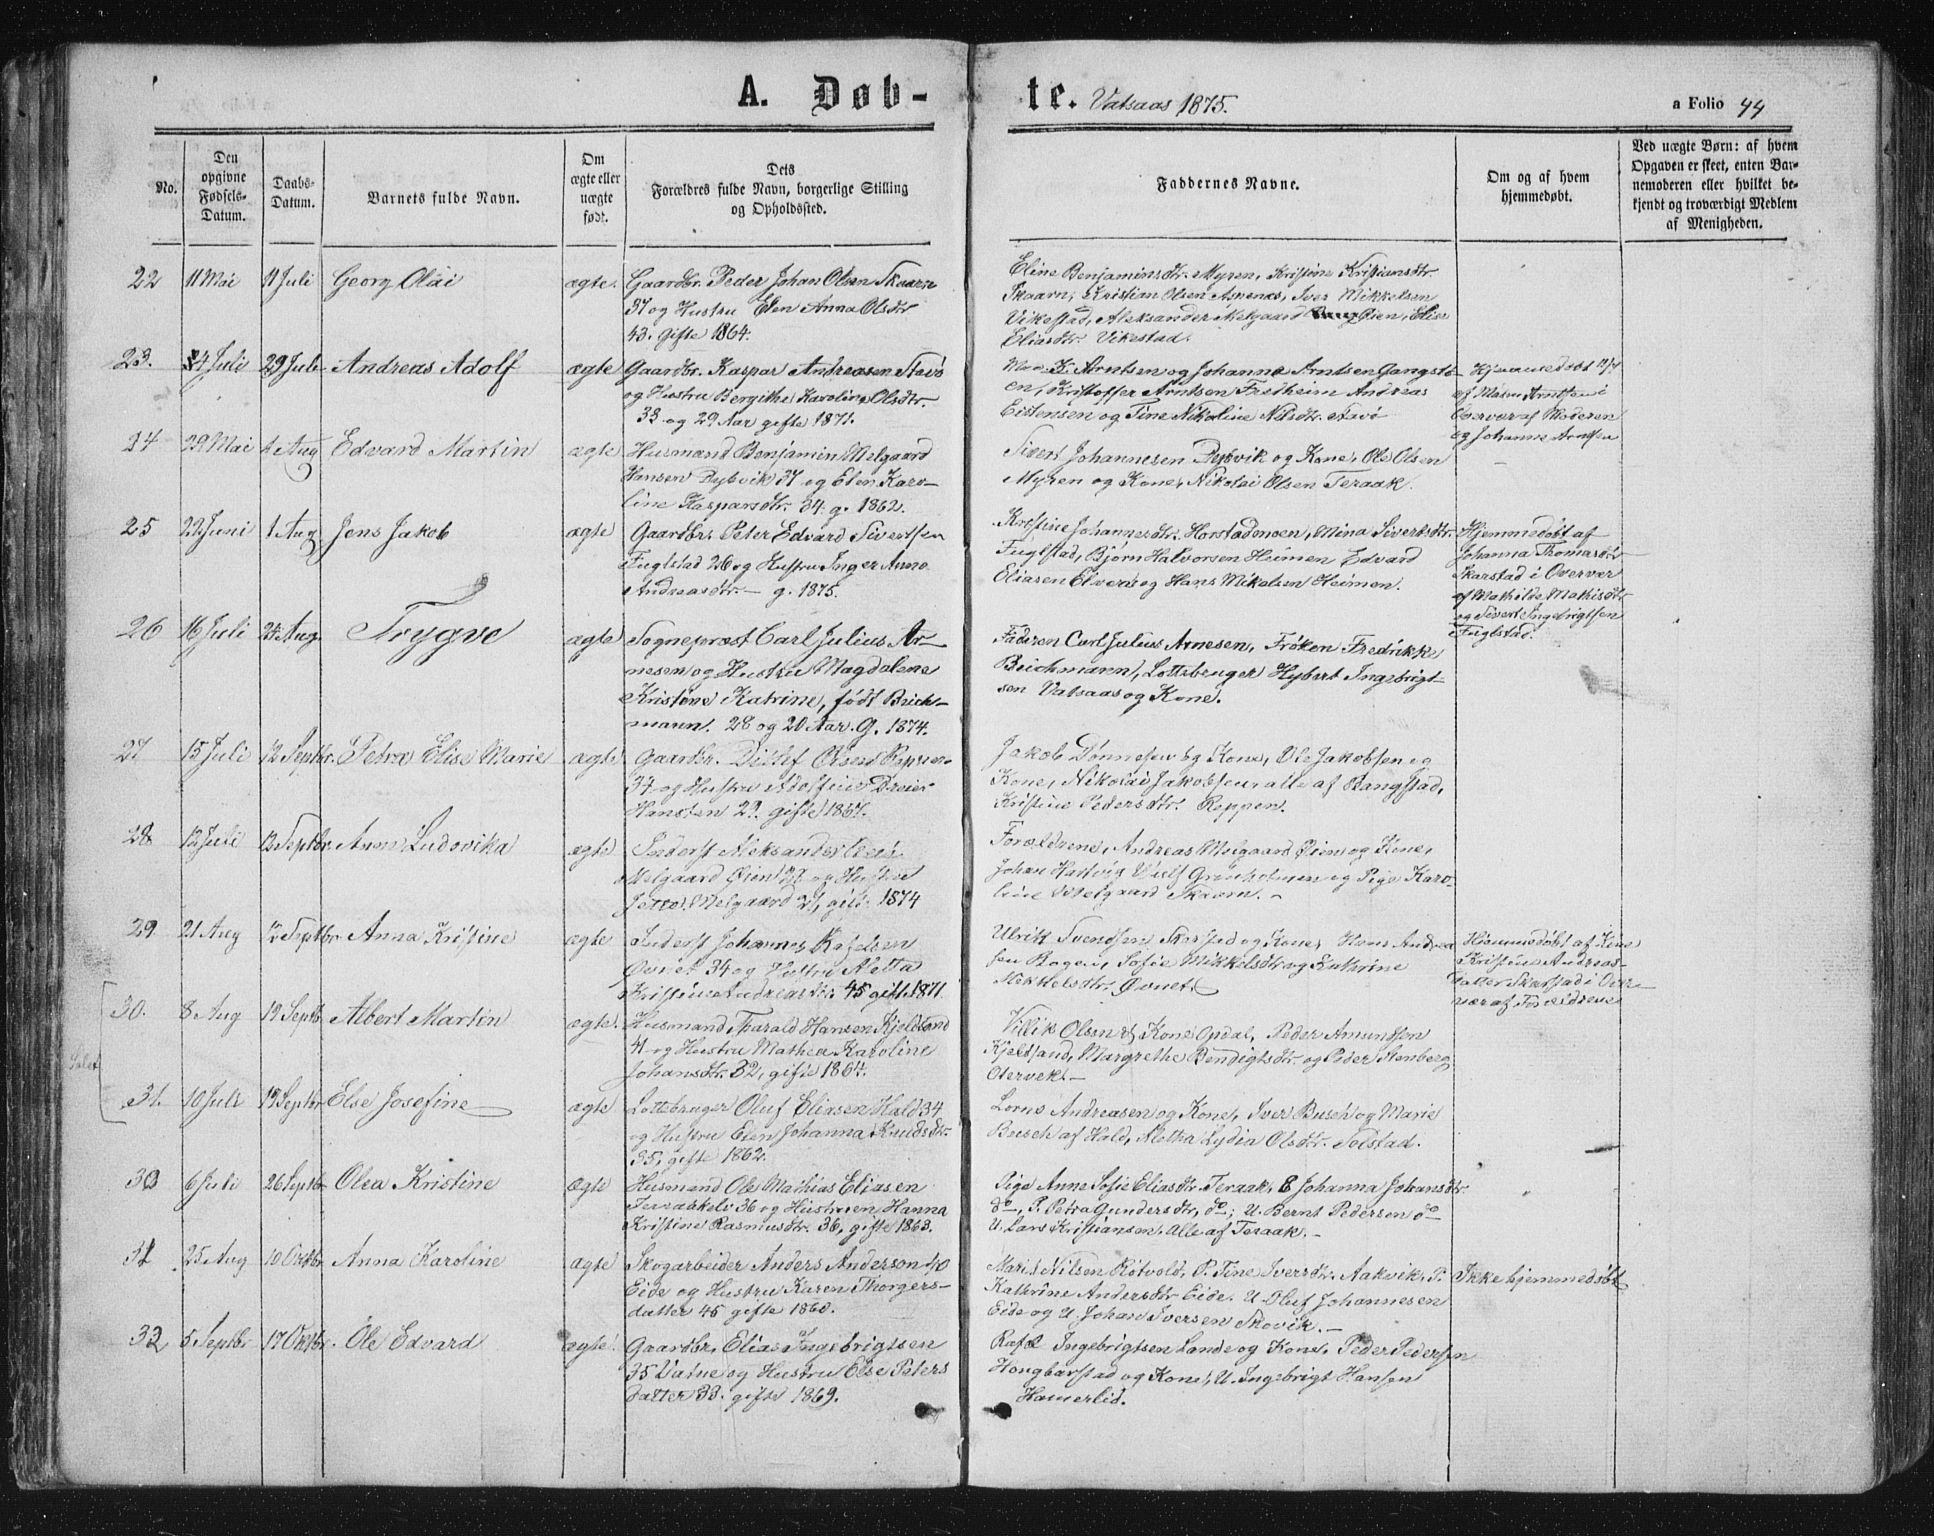 A. Døb-
te. Vatsaas 1875.
a Folio 44
No.
Den
opgivne
Fødsels-
Datum.
Daabs-
Datum.
Barnets fulde Navn.
Om
ægte eller
uægte
født.
Dets
Forældres fulde Navn, borgerlige Stilling
og Opholdssted.
Faddernes Navne.
Om og af hvem
hjemmedøbt.
Ved uægte Børn: af hvem
Opgaven er skeet, enten Bar-
nemoderen eller hvilket be-
kjendt og troværdigt Medlem
af Menigheden.
22 11 Mai 11 Juli Georg Olai ægte. Gaardbr. Peder Johan Olsen Skaarn
37 og Hustru Elen Anna Olsdtr
43. gifte 1864.
Eline Benjaminsdtr. Myren, Kristine Kristiansdtr.
Skaarn, Kristian Olsen Aspenæs, Iver Mikkelsen
Vikestad, Aleksander Melgaard Øien, Elise
Eliasdtr. Vikestad.
23. 4 Juli 29 Juli Andreas Adolf ægte Gaardbr. Kaspar Andreasen
og Hustru Bergithe Karoline Olsdtr.
33 og 29 Aar gifte 1871.
K. Arntsen og Johanna Arntsen Gangstø-
en, Kristoffer Arntsen Fredheim Andreas
Eistensen og Tine Nikoline Nilsdtr.
Hjemmedøbt 11/7
af Arntsen i
Overvær af Moderen
og Johanne Arntsen
24 29 Mai 1 Aug Edvard Martin ægte Husmand Benjamin Melgaard
Hansen Dybvik 37 og Elen Karo-
line Kasparsdtr. 34. g. 1862.
Sivert Johannesen Dybvik og Kone, Ole Olsen
Myren og Kone, Nikolai Olsen Teraak.
25 22 Juni 1 Aug Jens Jakob ægte Gaardbr. Peter Edvard Sivertsen
Fuglstad 26 og Hustru Inger Anna
Andreasdtr. – g. 1875.
Kristine Johannesdtr. Horstadmoen, Mina Sivertsdtr.
Fuglstad, Bjørn Halvorsen Heimen Edvard
Eliasen Elvern og Hans Mikalsen Heimen.
Hjemmedøbt af
Johanna Thomasdtr
Skarstad i Overvær
af Mathilde Mathisdtr
og Sivert Ingebrigtsen
Fuglstad.
26 16 Juli 24 Aug. Trygve ægte Sognepræst Carl Julius Ar-
nesen og Hustru Magdalene
Kristine Katrine, født Brich-
mann. 28 og 20 Aar. G. 1874.
Faderen Carl Julius Arnesen, Frøken Fredrikke
Brichmann, Lottebruger Hybert Ingebrigt-
sen Vatsaas og Kone.
27 15 Juli 12 Septbr. Petra Elise Marie ægte Gaardbr. Ditlef Olsen Reppen
34 og Hustru Adolfine Dreier
Hansten 29. gifte 1867.
Jakob Dønnesen og Kone, Ole Jakobsen og
Kone, Nikolai Jakobsen, alle af Rangstad,
Kristine Pedersdtr. Reppen.
28 13 Juli 12 Septbr. Anna Ludovika ægte Inderst Aleksander
Melgaard Øien 27 og Hustru
Jette Melgaard 21, gift 1874
Forældrene, Andreas Melgaard Øien og Kone,
Johan Hartvig og Pige Karo-
line Melgaard Skaarn. –
29 21 Aug 12 Septbr Anna Kristine ægte Inderst Johannes
Øvnet 34 og Hustru Aletta
Kristine Andreasdtr. 45 gift 1871
Ulrik Svendsen Skarstad og Kone, Hans Andrea
sen Bogen, Sofie Mikkelsdtr og Kathrine
Mikkelsdtr. Øvnet
Hjemmedøbt af
Kristine Andreas-
datter Skarstad i Over-
vær af Forældrene
30. 8 Aug 19 Septb. Albert Martin ægte. Husmand Tharald Hansen Kjeldsand
41 og Hustru Mathea Karoline
Johansdtr. 32, gifte 1864.
Villik Olsen & Kone Opdal, Peder Amundsen
Kjeldsand, Margrethe Bendigtsdtr. og Peder Stenberg
Otervek. –
31. 10 Juli 19 Septbr Else Josefine ægte Lottebruger Oluf Eliasen Hald 34
og Hustru Elen Johanna Knudsdtr.
35, gifte 1862.
Lorns Andreasen og Kone, Iver Busch og Marie
Busch af Hald, Aletha Lydia Olsdtr. Solstad.
6 Juli 26 Septbr Olea Kristine Ægte Husmand Ole Mathias Eliasen
36 og Hustruen Hanna
Kristine Rasmusdtr. 36, gifte 1863.
Pige Anne Sofie Eliasdtr Teraak, Johanna Johansdtr.
do, P. Petra Gundersdtr, do; U. Bernt Pedersen do
U. Lars Kristiansen. Alle af Teraak. –
25 Aug 10 Oktbr Anna Karoline ægte Skogarbeider Anders Anderson 40
Eide og Hustru Karen Thorgers-
datter 45 gifte 1860.
Nilsen Røtvold, P. Tine Iversdtr. Aakvik, P.
Kathrine Andersdtr Eide. U. Oluf Johannesen
Eide og U. Johan Iversen Skovik. –
Ikke hjemmedøbt
5 Septbr 17 Oktbr. Ole Edvard ægte Gaardbr. Elias Ingebrigtsen
35 og Hustru Else Peters
datter 33. gifte 1869.
Ingebrigtsen Lande og Kone, Peder Pedersen
Hongbarstad og Kone, U. Ingebrigt Hansen
Hamerlid.